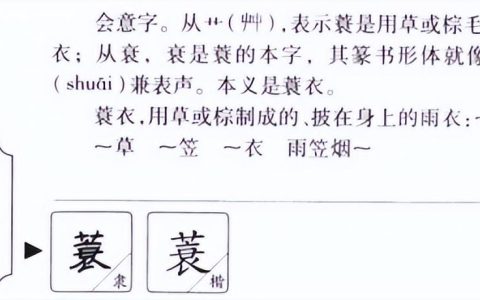 会意字。从艹(艸),表示蓑是用草或棕毛
衣；从衰，衰是蓑的本字，其篆书形体就像
(shuāi)兼表声。本义是蓑衣。
蓑衣,用草或棕制成的、披在身上的雨衣:~
~草 ~笠 ~衣 雨笠烟~
蓑 蓑
隶 楷